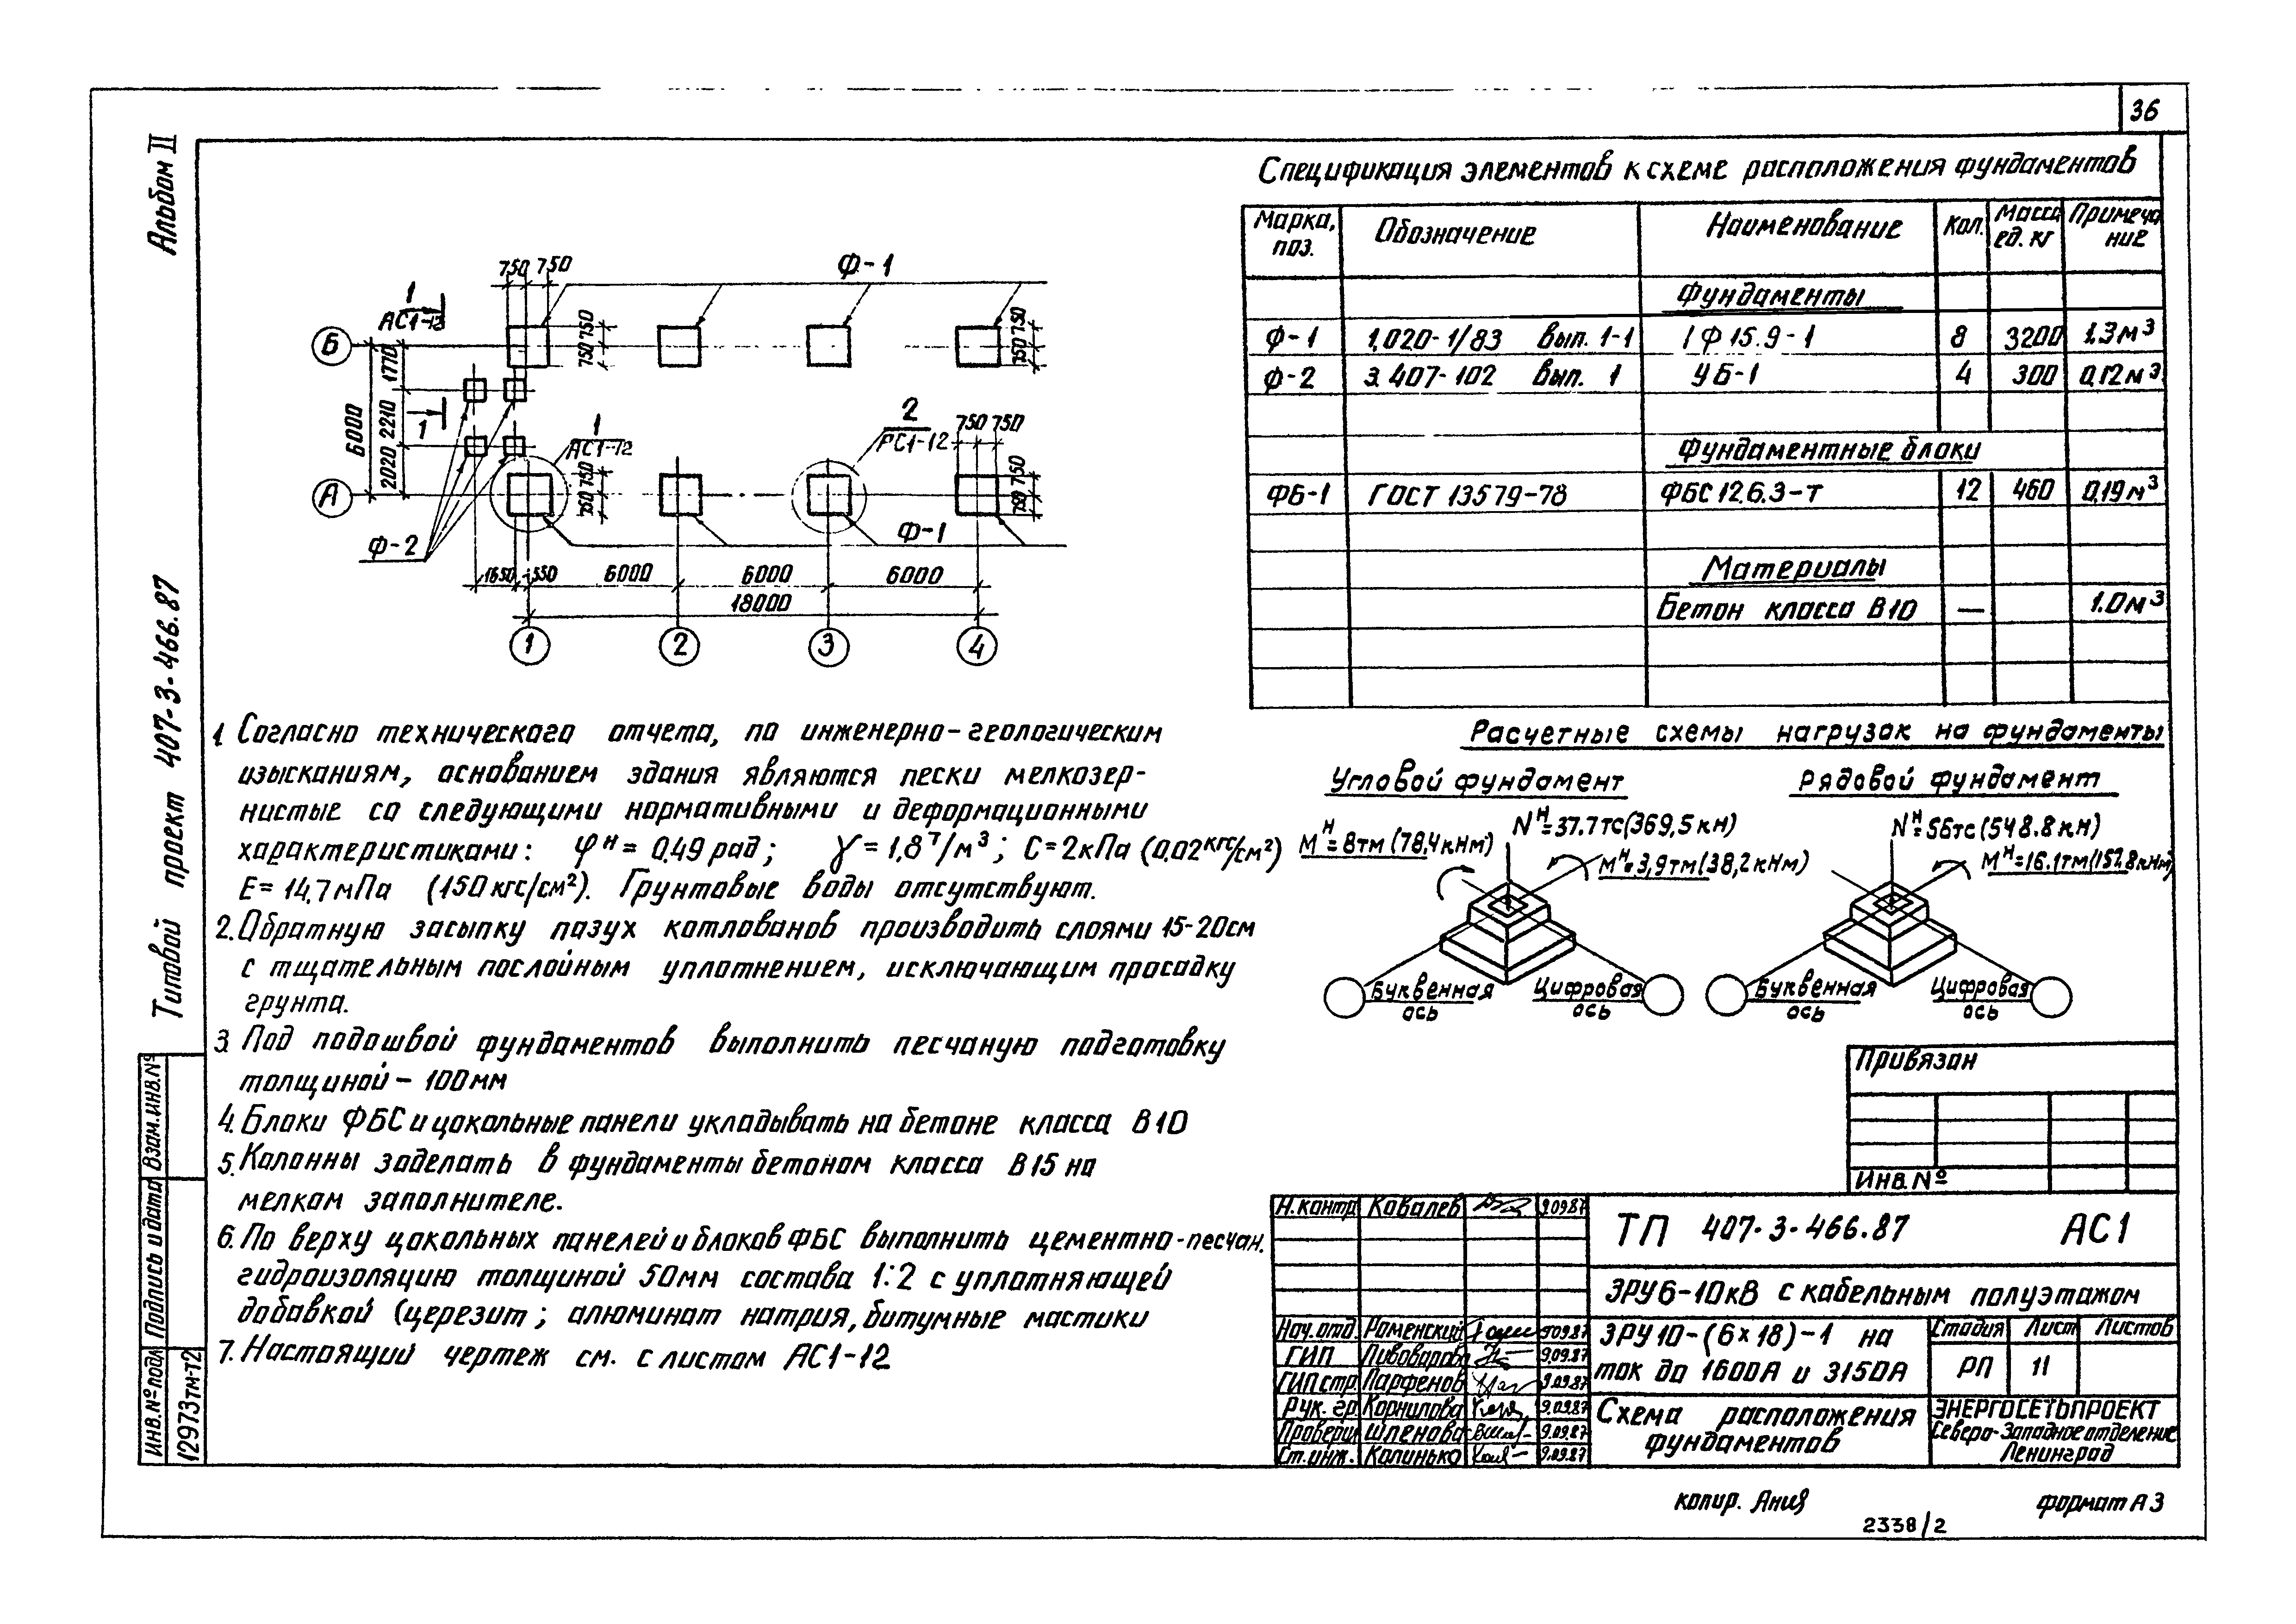 36
Альбом II
Типовой проект 407-3-466.87
Взам.инв.№
Подпись и дата
Инв.№ подл
12973тм-т2
Ф-1
750 750
1
АС1-12
Б
750 750
750 750
1770
2210
2020
6000
1
1
АС1-12
2
АС1-12
750 750
750 750
750
750
А
Ф-2
Ф-1
1650 550 6000 6000 6000
18000
1 2 3 4
Спецификация элементов к схеме расположения фундаментов
Марка, поз. Обозначение Наименование Кол. Масса ед. кг Примечание
Фундаменты
Ф-1 1.020-1/83 вып. 1-1 1Ф 15.9-1 8 3200 1.3м³
Ф-2 3.407-102 вып. 1 УБ-1 4 300 0,12м³
Фундаментные блоки
ФБ-1 ГОСТ 13579-78 ФБС 12.6.3-Т 12 460 0,19м³
Материалы
Бетон класса В10 — 1.0м³
1. Согласно технического отчета, по инженерно-геологическим
изысканиям, основанием здания являются пески мелкозер-
нистые со следующими нормативными и деформационными
характеристиками: φᴴ = 0,49 рад; γ = 1,8 т/м³; С = 2кПа (0,02 кгс/см²)
Е = 14,7мПа (150 кгс/см²). Грунтовые воды отсутствуют.
2. Обратную засыпку пазух котлованов производить слоями 15-20см
с тщательным послойным уплотнением, исключающим просадку
грунта.
3. Под подошвой фундаментов выполнить песчаную подготовку
толщиной - 100мм
4. Блоки ФБС и цокольные панели укладывать на бетоне класса В10
5. Колонны заделать в фундаменты бетоном класса В15 на
мелком заполнителе.
6. По верху цокольных панелей и блоков ФБС выполнить цементно-песчан.
гидроизоляцию толщиной 50мм состава 1:2 с уплотняющей
добавкой (церезит; алюминат натрия, битумные мастики
7. Настоящий чертеж см. с листом АС1-12
Расчетные схемы нагрузок на фундаменты
Угловой фундамент
Рядовой фундамент
Nᴴ=37.7тс(369,5кн)
Мᴴ=8тм(78,4кНм)
Мᴴ=3,9тм(38,2кНм)
Nᴴ=56тс(548.8кн)
Мᴴ=16.1тм(157.8кНм)
Буквенная ось
Цифровая ось
Буквенная ось
Цифровая ось
Привязан
Инв.№
Н.контр. Ковалев 9.09.87
Нач.отд. Роменский 9.09.87
ГИП Пивоваров 9.09.87
ГИП стр. Парфенов 9.09.87
Рук. гр. Корнилова 9.09.87
Проверил Шленова 9.09.87
Ст.инж. Калинько 9.09.87
ТП 407-3-466.87 АС1
ЗРУ 6-10кВ с кабельным полуэтажом
ЗРУ 10-(6×18)-1 на
ток до 1600А и 3150А
Стадия Лист Листов
РП 11
Схема расположения
фундаментов
ЭНЕРГОСЕТЬПРОЕКТ
Северо-Западное отделение
Ленинград
копир.
формат А3
2338/2